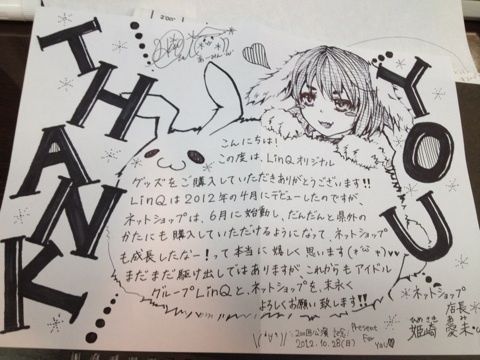 THANK
YOU
こんにちは!
この度は、LinQオリジナル
グッズをご購入していただきありがとうございます!!
LinQは2012年の4月にデビューしたのですが、
ネットショップは、6月に始動し、だんだんと県外の
かたにも購入していただけるようになって、ネットショップ
も成長したなー!って本当に嬉しく思います(*'ω'*)♥♥
まだまだ駆け出しではありますが、これからもアイドル
グループLinQと、ネットショップを、末永く
よろしくお願い致します!!
*ネットショップ
店長*
ひめさき あみ
姫崎 愛未
200回公演 記念 Present
For
You♥
2012.10.28(日)